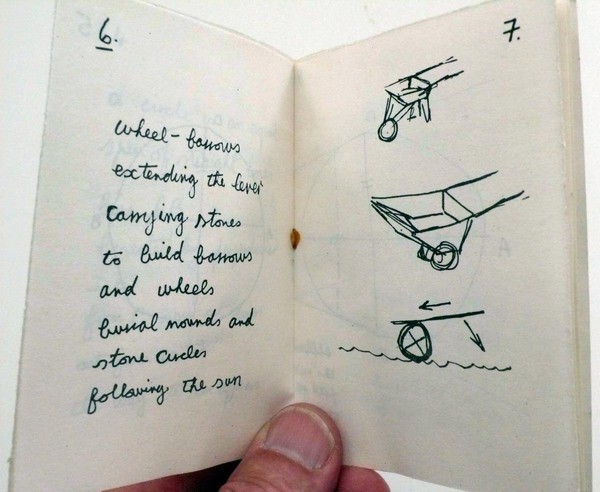 6.
wheel-barrows
extending the lever
carrying stones
to build barrows
and wheels
burial mounds and
stone circles
following the sun
7.
A